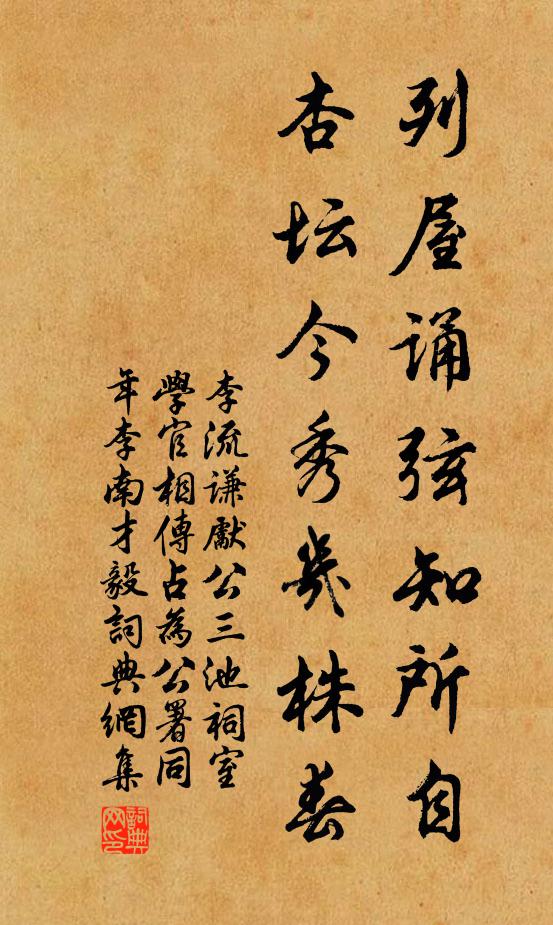 列屋诵弦知所自
杏坛今秀几株春
李流谦獻公三池祠室
學官相傳占為公署同
年李南才毅詞典網集
詞典
网印